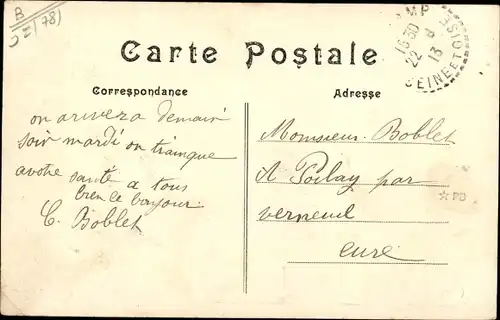 B
(78)
Carte Postale
Correspondance
Adresse
16 30
22 8
13
SEINE ET OISE
on arivera demain
soir mardi on trainque
avotre santé a tous
bien le bonjour
C. Boblet
Monsieur Boblet
A Poilay par
verneuil
eure
☆ PD